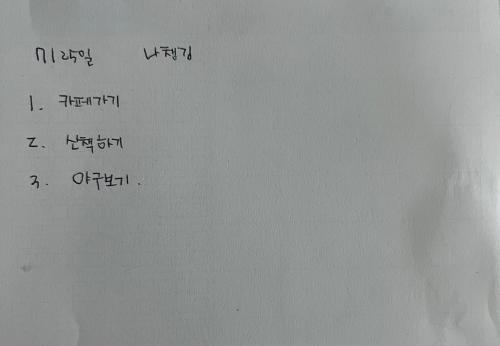 7/25일 나챙김
1. 카페가기
2. 산책하기
3. 야구보기.